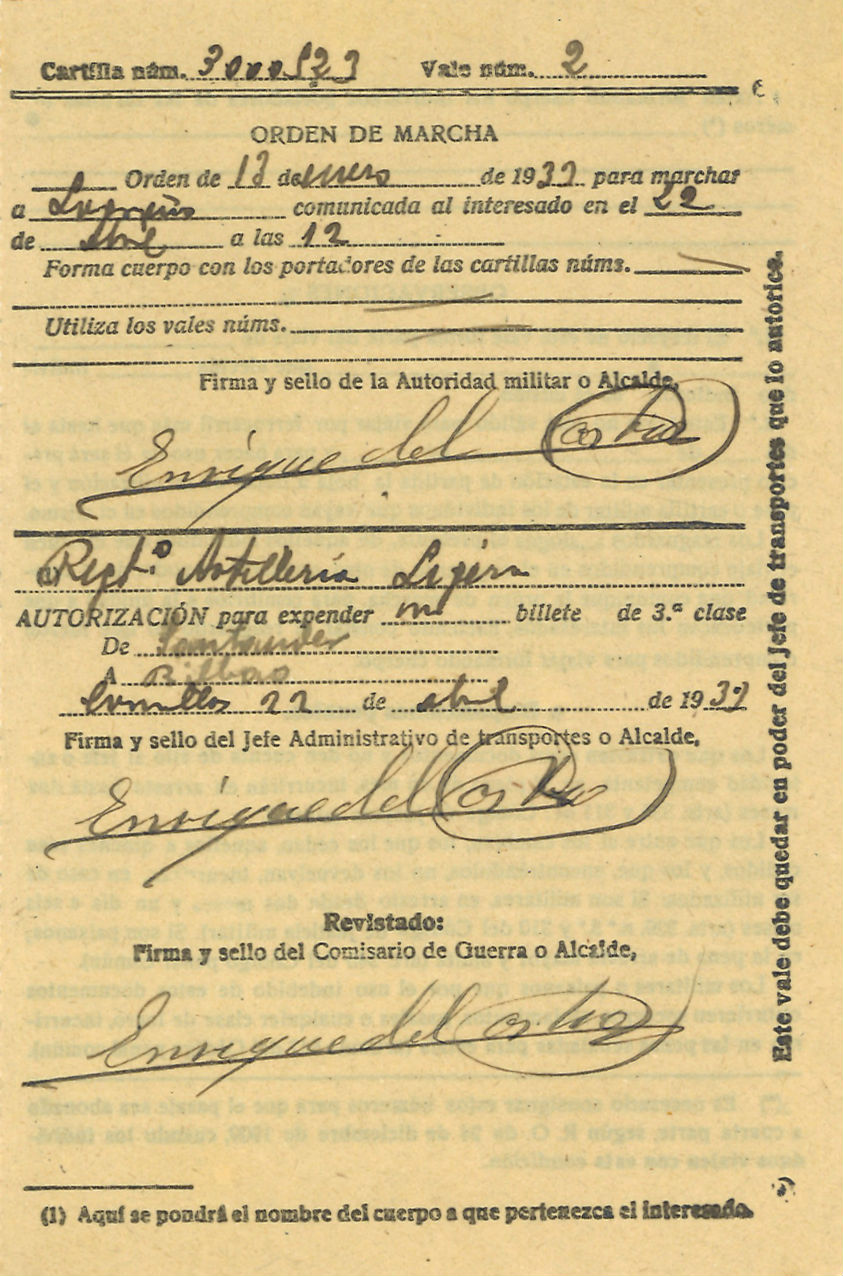 Cartilla núm. 3000523 Vale núm. 2
ORDEN DE MARCHA
Orden de 13 de enero de 1937 para marchar
a Logroño comunicada al interesado en el 22
de abril a las 12
Forma cuerpo con los portadores de las cartillas núms.
Utiliza los vales núms.
Firma y sello de la Autoridad militar o Alcalde,
Enrique del Castro
Regtº Artillería Ligera
AUTORIZACIÓN para expender un billete de 3.ª clase
De Santander
A Bilbao
Comillas 22 de abril de 1939
Firma y sello del Jefe Administrativo de transportes o Alcalde,
Enrique del Castro
Revistado:
Firma y sello del Comisario de Guerra o Alcalde,
Enrique del Castro
(1) Aquí se pondrá el nombre del cuerpo a que pertenezca el interesado.
Este vale debe quedar en poder del Jefe de transportes que lo autorice.